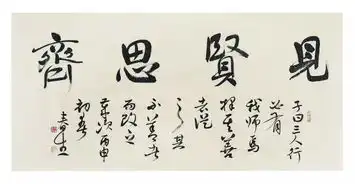 見賢思齊
子曰三人行
必有
我师焉
擇其善
者從
之其
不善者
而改之
歲次丙申
初春